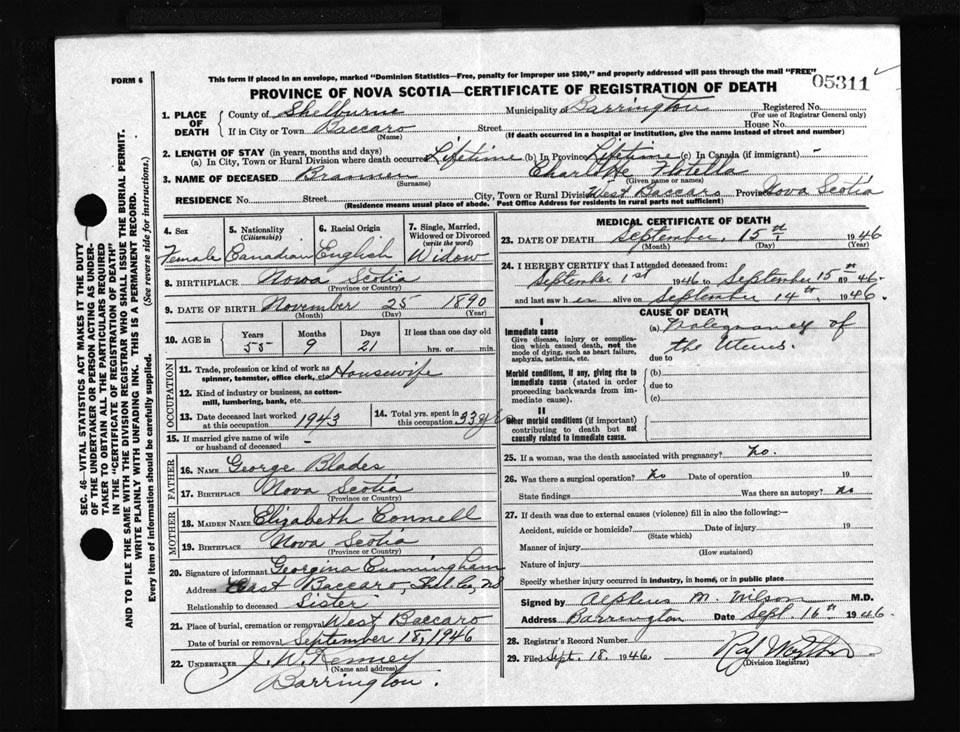 FORM 6
This form if placed in an envelope, marked "Dominion Statistics—Free, penalty for improper use $300," and properly addressed will pass through the mail "FREE"
05311
PROVINCE OF NOVA SCOTIA—CERTIFICATE OF REGISTRATION OF DEATH
1. PLACE OF DEATH
County of Shelburne Municipality Barrington Registered No.
(For use of Registrar General only)
If in City or Town Baccaro Street House No.
(Name) (If death occurred in a hospital or institution, give the name instead of street and number)
2. LENGTH OF STAY (in years, months and days)
(a) In City, Town or Rural Division where death occurred Lifetime (b) In Province Lifetime (c) In Canada (if immigrant) -
3. NAME OF DECEASED Brannen Charlotte Flotella
(Surname) (Given name or names)
RESIDENCE No. Street City, Town or Rural Division West Baccaro Province Nova Scotia
(Residence means usual place of abode. Post Office Address for residents in rural parts not sufficient)
4. Sex
Female
5. Nationality
(Citizenship)
Canadian
6. Racial Origin
English
7. Single, Married, Widowed or Divorced
(write the word)
Widow
8. BIRTHPLACE Nova Scotia
(Province or Country)
9. DATE OF BIRTH November 25 1890
(Month) (Day) (Year)
10. AGE in Years Months Days If less than one day old
55 9 21 hrs. or min.
OCCUPATION
11. Trade, profession or kind of work as spinner, teamster, office clerk, etc. Housewife
12. Kind of industry or business, as cotton-mill, lumbering, bank, etc.
13. Date deceased last worked at this occupation 1943
14. Total yrs. spent in this occupation 33 yrs
15. If married give name of wife or husband of deceased -
FATHER
16. NAME George Blades
17. BIRTHPLACE Nova Scotia
(Province or Country)
MOTHER
18. MAIDEN NAME Elizabeth Connell
19. BIRTHPLACE Nova Scotia
(Province or Country)
20. Signature of informant Georgina Cunningham
Address East Baccaro, Shel. Co., NS
Relationship to deceased Sister
21. Place of burial, cremation or removal West Baccaro
Date of burial or removal September 18, 1946
22. UNDERTAKER J. W. Kenney
(Name and address)
Barrington.
MEDICAL CERTIFICATE OF DEATH
23. DATE OF DEATH September, 15th 1946
(Month) (Day) (Year)
24. I HEREBY CERTIFY that I attended deceased from:
September 1st 1946 to September 15th 1946.
and last saw her alive on September 14th 1946.
CAUSE OF DEATH
I
Immediate cause
Give disease, injury or complication which caused death, not the mode of dying, such as heart failure, asphyxia, asthenia, etc.
(a) Malegnancy of the Uterus.
due to
Morbid conditions, if any, giving rise to immediate cause (stated in order proceeding backwards from immediate cause).
(b)
due to
(c)
II
Other morbid conditions (if important) contributing to death but not causally related to immediate cause.
25. If a woman, was the death associated with pregnancy? No.
26. Was there a surgical operation? No Date of operation 19
State findings Was there an autopsy? No
27. If death was due to external causes (violence) fill in also the following:—
Accident, suicide or homicide? Date of injury 19
(State which)
Manner of injury
(How sustained)
Nature of injury
Specify whether injury occurred in industry, in home, or in public place
Signed by Alphus M. Wilson M.D.
Address Barrington Date Sept. 16th 1946.
28. Registrar's Record Number
29. Filed Sept. 18. 1946.
(Division Registrar)
SEC. 46—VITAL STATISTICS ACT MAKES IT THE DUTY
OF THE UNDERTAKER OR PERSON ACTING AS UNDER-
TAKER TO OBTAIN ALL THE PARTICULARS REQUIRED
IN THE "CERTIFICATE OF REGISTRATION OF DEATH"
AND TO FILE THE SAME WITH THE DIVISION REGISTRAR WHO SHALL ISSUE THE BURIAL PERMIT.
WRITE PLAINLY WITH UNFADING INK. THIS IS A PERMANENT RECORD.
Every item of information should be carefully supplied. (See reverse side for instructions.)